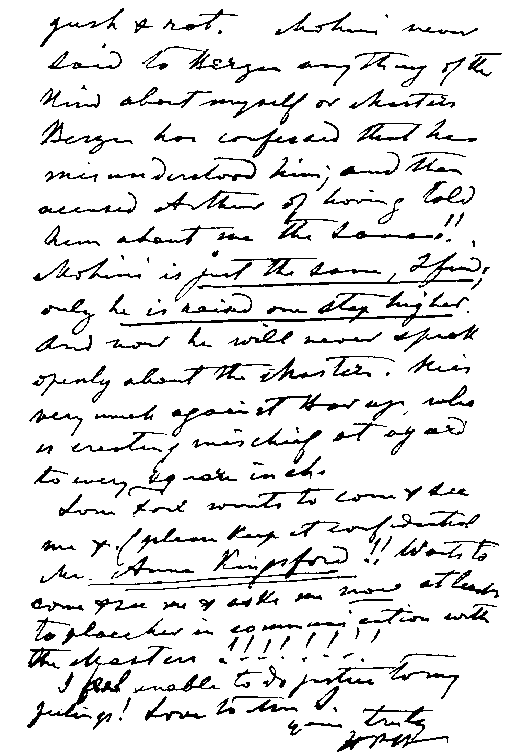 gush & rot. Mohini never
said to Bergen anything of the
kind about myself or Masters
Bergen has confessed that has
misunderstood him; and then
accused Arthur of having told
him about me the same!!
Mohini is just the same, I find;
only he is raised one step higher.
And now he will never speak
openly about the Masters. He is
very much against who
is creating mischief at a yard
to every square inch.
wants to come & see
me & (please keep it confidential
Anna Kingsford!! Wants to
come & see me & asks me now at least
to place her in communication with
the Masters !!!!!!!!
I feel unable to do justice to my
feelings! Love to
truly
HPB